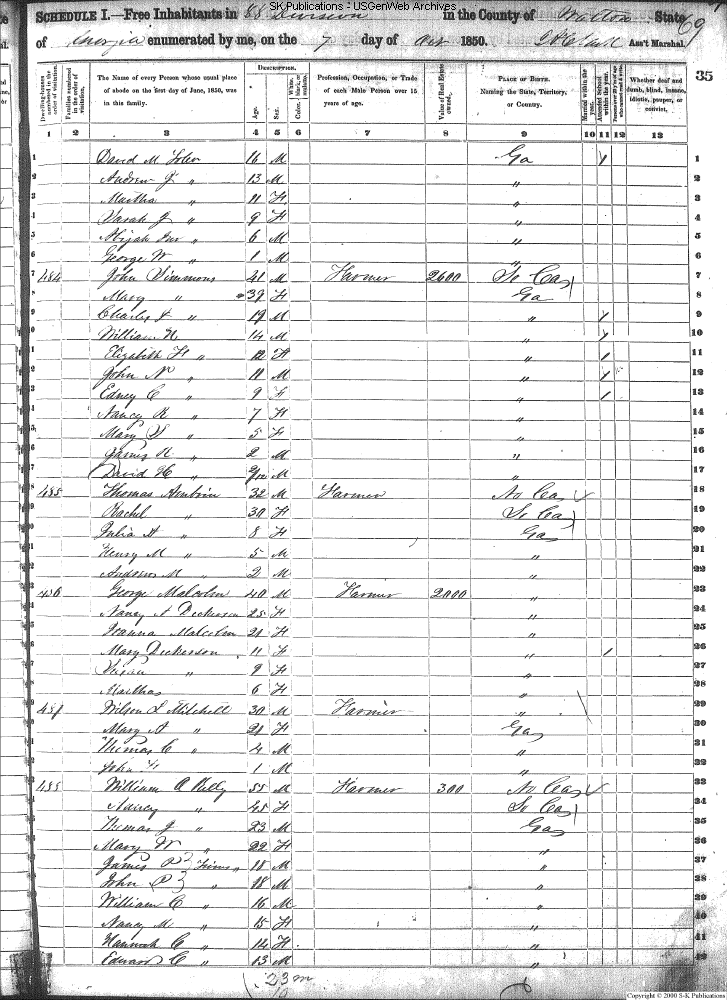 SK Publications - USGenWeb Archives
SCHEDULE I.—Free Inhabitants in 88 Division in the County of Walton State
of Georgia enumerated by me, on the 7 day of Oct 1850. Ass't Marshal.
69
35
Dwelling-houses numbered in the order of visitation.
Families numbered in the order of visitation.
The Name of every Person whose usual place of abode on the first day of June, 1850, was in this family.
DESCRIPTION.
Age.
Sex.
Color, White, black, or mulatto.
Profession, Occupation, or Trade of each Male Person over 15 years of age.
Value of Real Estate owned.
PLACE OF BIRTH. Naming the State, Territory, or Country.
Married within the year.
Attended School within the year.
Persons over 20 y'rs of age who cannot read & write.
Whether deaf and dumb, blind, insane, idiotic, pauper, or convict.
1 2 3 4 5 6 7 8 9 10 11 12 13
1 David M 16 M Ga / 1
2 Andrew J " 13 M " 2
3 Martha " 11 F " 3
4 Sarah J " 9 F " 4
5 Abijah " 6 M " 5
6 George W " 1 M " 6
7 484 John Simmons 41 M Farmer 2600 So Ca 7
8 Mary " 39 F Ga 8
9 Charles J " 19 M " / 9
10 William H 14 M " / 10
11 Elizabeth F " 12 F " / 11
12 John N " 11 M " / 12
13 Edney C " 9 F " / 13
14 Nancy R " 7 F " 14
15 Mary " 5 F " 15
16 James R " 2 M " 16
17 David H " M " 17
18 485 Thomas 32 M Farmer No Ca 18
19 Rachel " 30 F So Ca 19
20 Julia A " 8 F Ga 20
21 Henry M " 5 M " 21
22 Andrew M 2 M " 22
23 486 George Malcolm 40 M Farmer 2000 " 23
24 Nancy A Dickerson 25 F " 24
25 Joanna Malcolm 21 F " 25
26 Mary Dickerson 11 F " / 26
27 " 9 F " 27
28 Martha 6 F " 28
29 487 Wilson L Mitchell 30 M Farmer " 29
30 Mary A " 21 F Ga 30
31 Thomas C " 4 M " 31
32 John 1 M " 32
33 488 William A Kelly 55 M Farmer 300 No Ca 33
34 Nancy " 45 F So Ca 34
35 Thomas J " 23 M Ga 35
36 Mary W " 22 F " 36
37 James P } Twins " 18 M " 37
38 John P } 18 M " 38
39 William C " 16 M " 39
40 Nancy M " 15 F " 40
41 Hannah C " 14 F " 41
42 Edward C " 13 M " 42
23 m
Copyright © 2000 S-K Publications